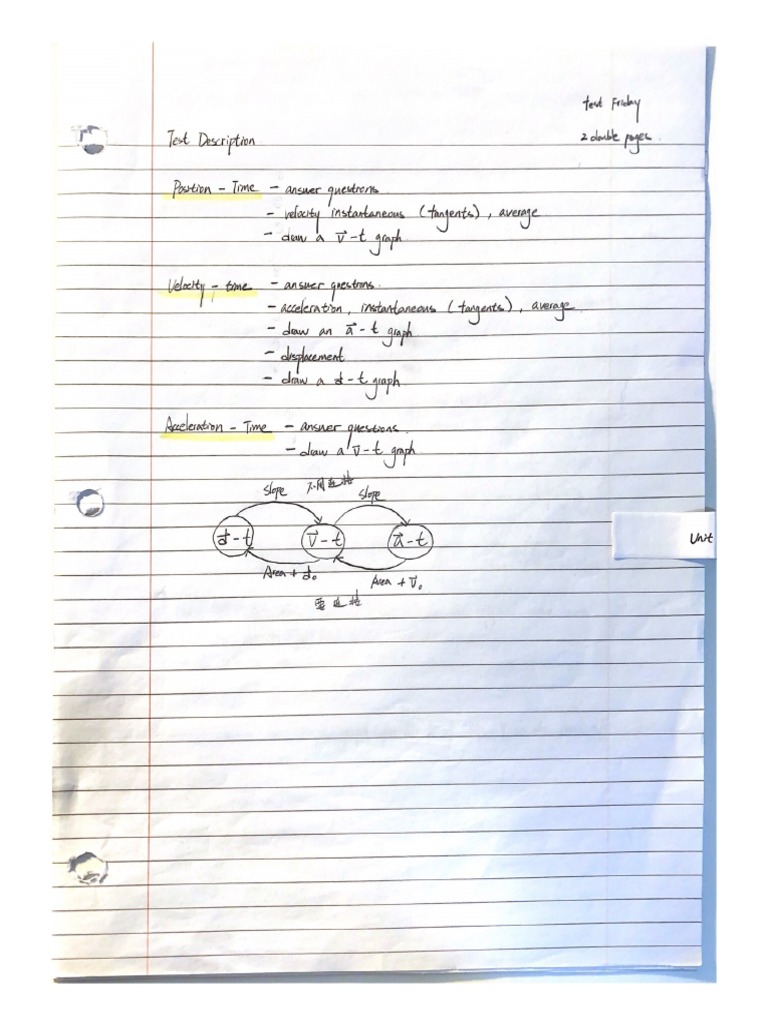 test Friday
2 double pages.
Test Description
Position - Time - answer questions
- velocity instantaneous (tangents), average
- draw a v⃗-t graph
Velocity - time - answer questions.
- acceleration, instantaneous (tangents), average
- draw an a⃗-t graph
- displacement
- draw a d⃗-t graph
Acceleration - Time - answer questions.
- draw a v⃗-t graph
Slope 不用连接 Slope
d⃗-t v⃗-t a⃗-t
Unit
Area + d⃗₀ Area + v⃗₀
要连接